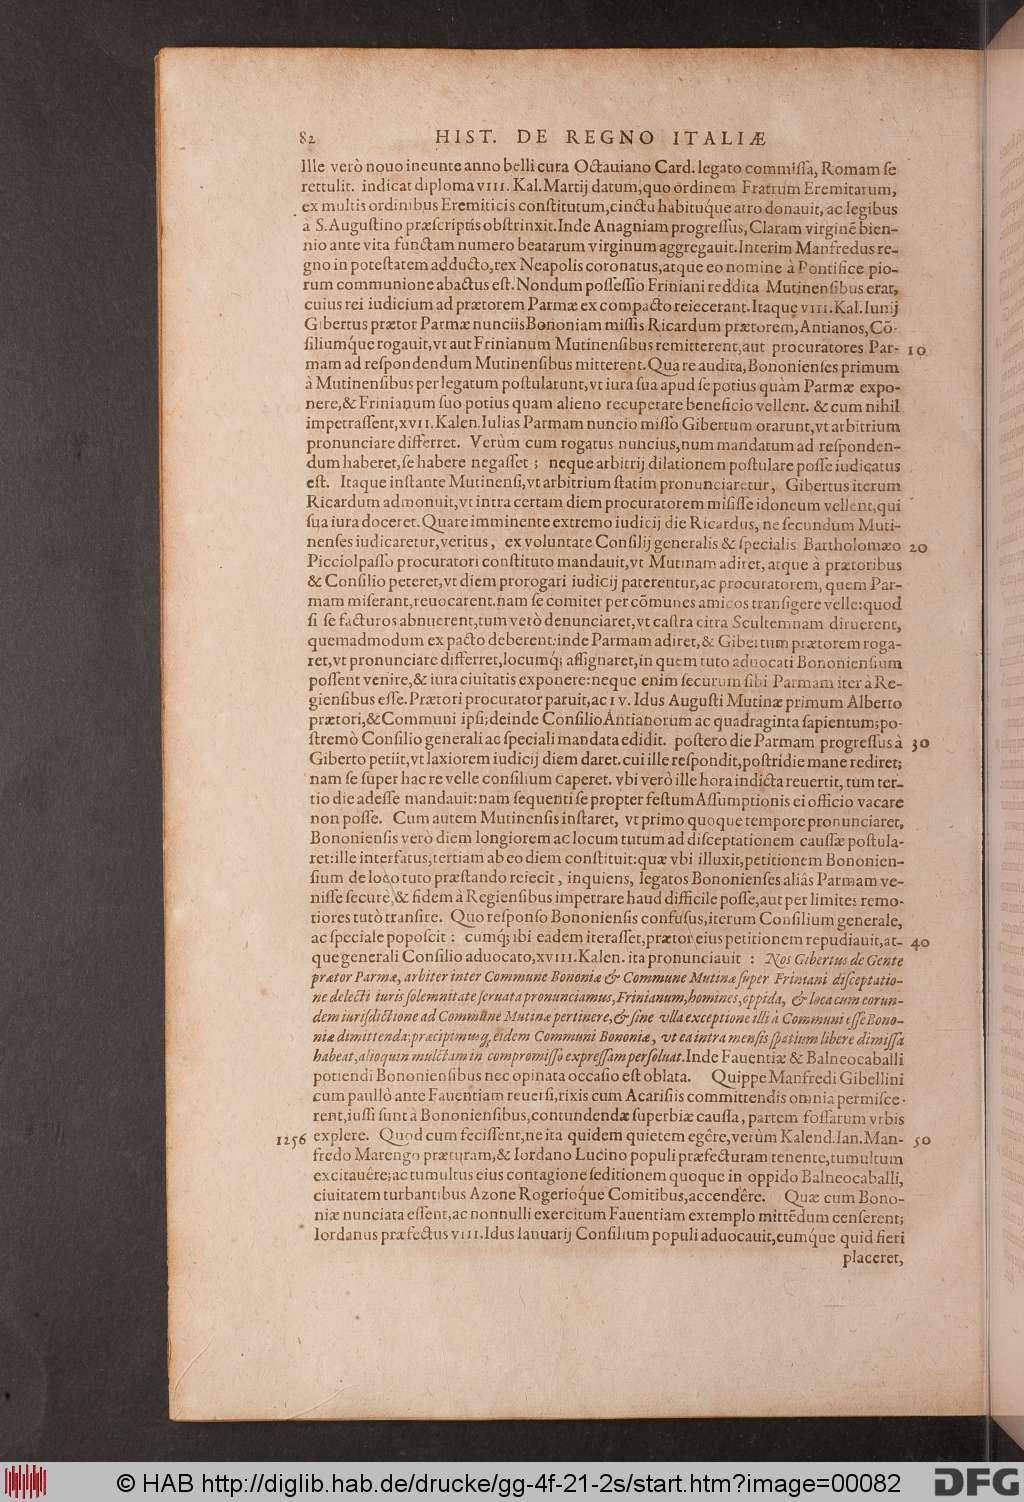 82 HIST. DE REGNO ITALIÆ
Ille verò nouo ineunte anno belli cura Octauiano Card. legato commiſſa, Romam ſe
rettulit. indicat diploma VIII. Kal. Martij datum, quo ordinem Fratrum Eremitarum,
ex multis ordinibus Eremiticis conſtitutum, cinctu habituq́ue atro donauit, ac legibus
à S. Auguſtino præſcriptis obſtrinxit. Inde Anagniam progreſſus, Claram virginē bien-
nio ante vita functam numero beatarum virginum aggregauit. Interim Manfredus re-
gno in poteſtatem adducto, rex Neapolis coronatus, atque eo nomine à Pontifice pio-
rum communione abactus eſt. Nondum poſſeſſio Friniani reddita Mutinenſibus erat,
cuius rei iudicium ad prætorem Parmæ ex compacto reiecerant. Itaque VIII. Kal. Iunij
Gibertus prætor Parmæ nunciis Bononiam miſſis Ricardum prætorem, Antianos, Cō-
ſiliumq́ue rogauit, vt aut Frinianum Mutinenſibus remitterent, aut procuratores Par- 10
mam ad reſpondendum Mutinenſibus mitterent. Qua re audita, Bononienſes primum
à Mutinenſibus per legatum poſtularunt, vt iura ſua apud ſe potius quàm Parmæ expo-
nere, & Frinianum ſuo potius quam alieno recuperare beneficio vellent. & cum nihil
impetraſſent, XVII. Kalen. Iulias Parmam nuncio miſſo Gibertum orarunt, vt arbitrium
pronunciare differret. Verùm cum rogatus nuncius, num mandatum ad reſponden-
dum haberet, ſe habere negaſſet ; neque arbitrij dilationem poſtulare poſſe iudicatus
eſt. Itaque inſtante Mutinenſi, vt arbitrium ſtatim pronunciaretur, Gibertus iterum
Ricardum admonuit, vt intra certam diem procuratorem miſiſſe idoneum vellent, qui
ſua iura doceret. Quare imminente extremo iudicij die Ricardus, ne ſecundum Muti-
nenſes iudicaretur, veritus, ex voluntate Conſilij generalis & ſpecialis Bartholomæo 20
Picciolpaſſo procuratori conſtituto mandauit, vt Mutinam adiret, atque à prætoribus
& Conſilio peteret, vt diem prorogari iudicij paterentur, ac procuratorem, quem Par-
mam miſerant, reuocarent. nam ſe comiter per cōmunes amicos tranſigere velle: quod
ſi ſe facturos abnuerent, tum verò denunciaret, vt caſtra citra Scultemnam diruerent,
quemadmodum ex pacto deberent: inde Parmam adiret, & Gibertum prætorem roga-
ret, vt pronunciare differret, locumq́; aſſignaret, in quem tuto aduocati Bononienſium
poſſent venire, & iura ciuitatis exponere: neque enim ſecurum ſibi Parmam iter à Re-
gienſibus eſſe. Prætori procurator paruit, ac IV. Idus Auguſti Mutinæ primum Alberto
prætori, & Communi ipſi; deinde Conſilio Antianorum ac quadraginta ſapientum; po-
ſtremò Conſilio generali ac ſpeciali mandata edidit. poſtero die Parmam progreſſus à 30
Giberto petiit, vt laxiorem iudicij diem daret. cui ille reſpondit, poſtridie mane rediret;
nam ſe ſuper hac re velle conſilium caperet. vbi verò ille hora indicta reuertit, tum ter-
tio die adeſſe mandauit: nam ſequenti ſe propter feſtum Aſſumptionis ei officio vacare
non poſſe. Cum autem Mutinenſis inſtaret, vt primo quoque tempore pronunciaret,
Bononienſis verò diem longiorem ac locum tutum ad diſceptationem cauſſæ poſtula-
ret: ille interfatus, tertiam ab eo diem conſtituit: quæ vbi illuxit, petitionem Bononien-
ſium de loco tuto præſtando reiecit, inquiens, legatos Bononienſes aliàs Parmam ve-
niſſe ſecurè, & fidem à Regienſibus impetrare haud difficile poſſe, aut per limites remo-
tiores tutò tranſire. Quo reſponſo Bononienſis confuſus, iterum Conſilium generale,
ac ſpeciale popoſcit : cumq́; ibi eadem iteraſſet, prætor eius petitionem repudiauit, at- 40
que generali Conſilio aduocato, XVIII. Kalen. ita pronunciauit : Nos Gibertus de Gente
prætor Parmæ, arbiter inter Commune Bononiæ & Commune Mutinæ ſuper Friniani diſceptatio-
ne delecti iuris ſolemnitate ſeruata pronunciamus, Frinianum, homines, oppida, & loca cum eorun-
dem iuriſdictione ad Commune Mutinæ pertinere, & ſine vlla exceptione illi à Communi eſſe Bono-
niæ dimittenda: præcipimusq́, eidem Communi Bononiæ, vt ea intra menſis ſpatium libere dimiſſa
habeat, alioquin mulctam in compromiſſo expreſſam perſoluat. Inde Fauentiæ & Balneocaballi
potiendi Bononienſibus nec opinata occaſio eſt oblata. Quippe Manfredi Gibellini
cum paullò ante Fauentiam reuerſi, rixis cum Acariſiis committendis omnia permiſce-
rent, iuſſi ſunt à Bononienſibus, contundendæ ſuperbiæ cauſſa, partem foſſarum vrbis
1256 explere. Quod cum feciſſent, ne ita quidem quietem egêre, verùm Kalend. Ian. Man- 50
fredo Marengo præturam, & Iordano Lucino populi præfecturam tenente, tumultum
excitauêre; ac tumultus eius contagione ſeditionem quoque in oppido Balneocaballi,
ciuitatem turbantibus Azone Rogerioq́ue Comitibus, accendêre. Quæ cum Bono-
niæ nunciata eſſent, ac nonnulli exercitum Fauentiam extemplo mittēdum cenſerent;
Iordanus præfectus VIII. Idus Ianuarij Conſilium populi aduocauit, eumq́ue quid fieri
placeret,
© HAB http://diglib.hab.de/drucke/gg-4f-21-2s/start.htm?image=00082 DFG